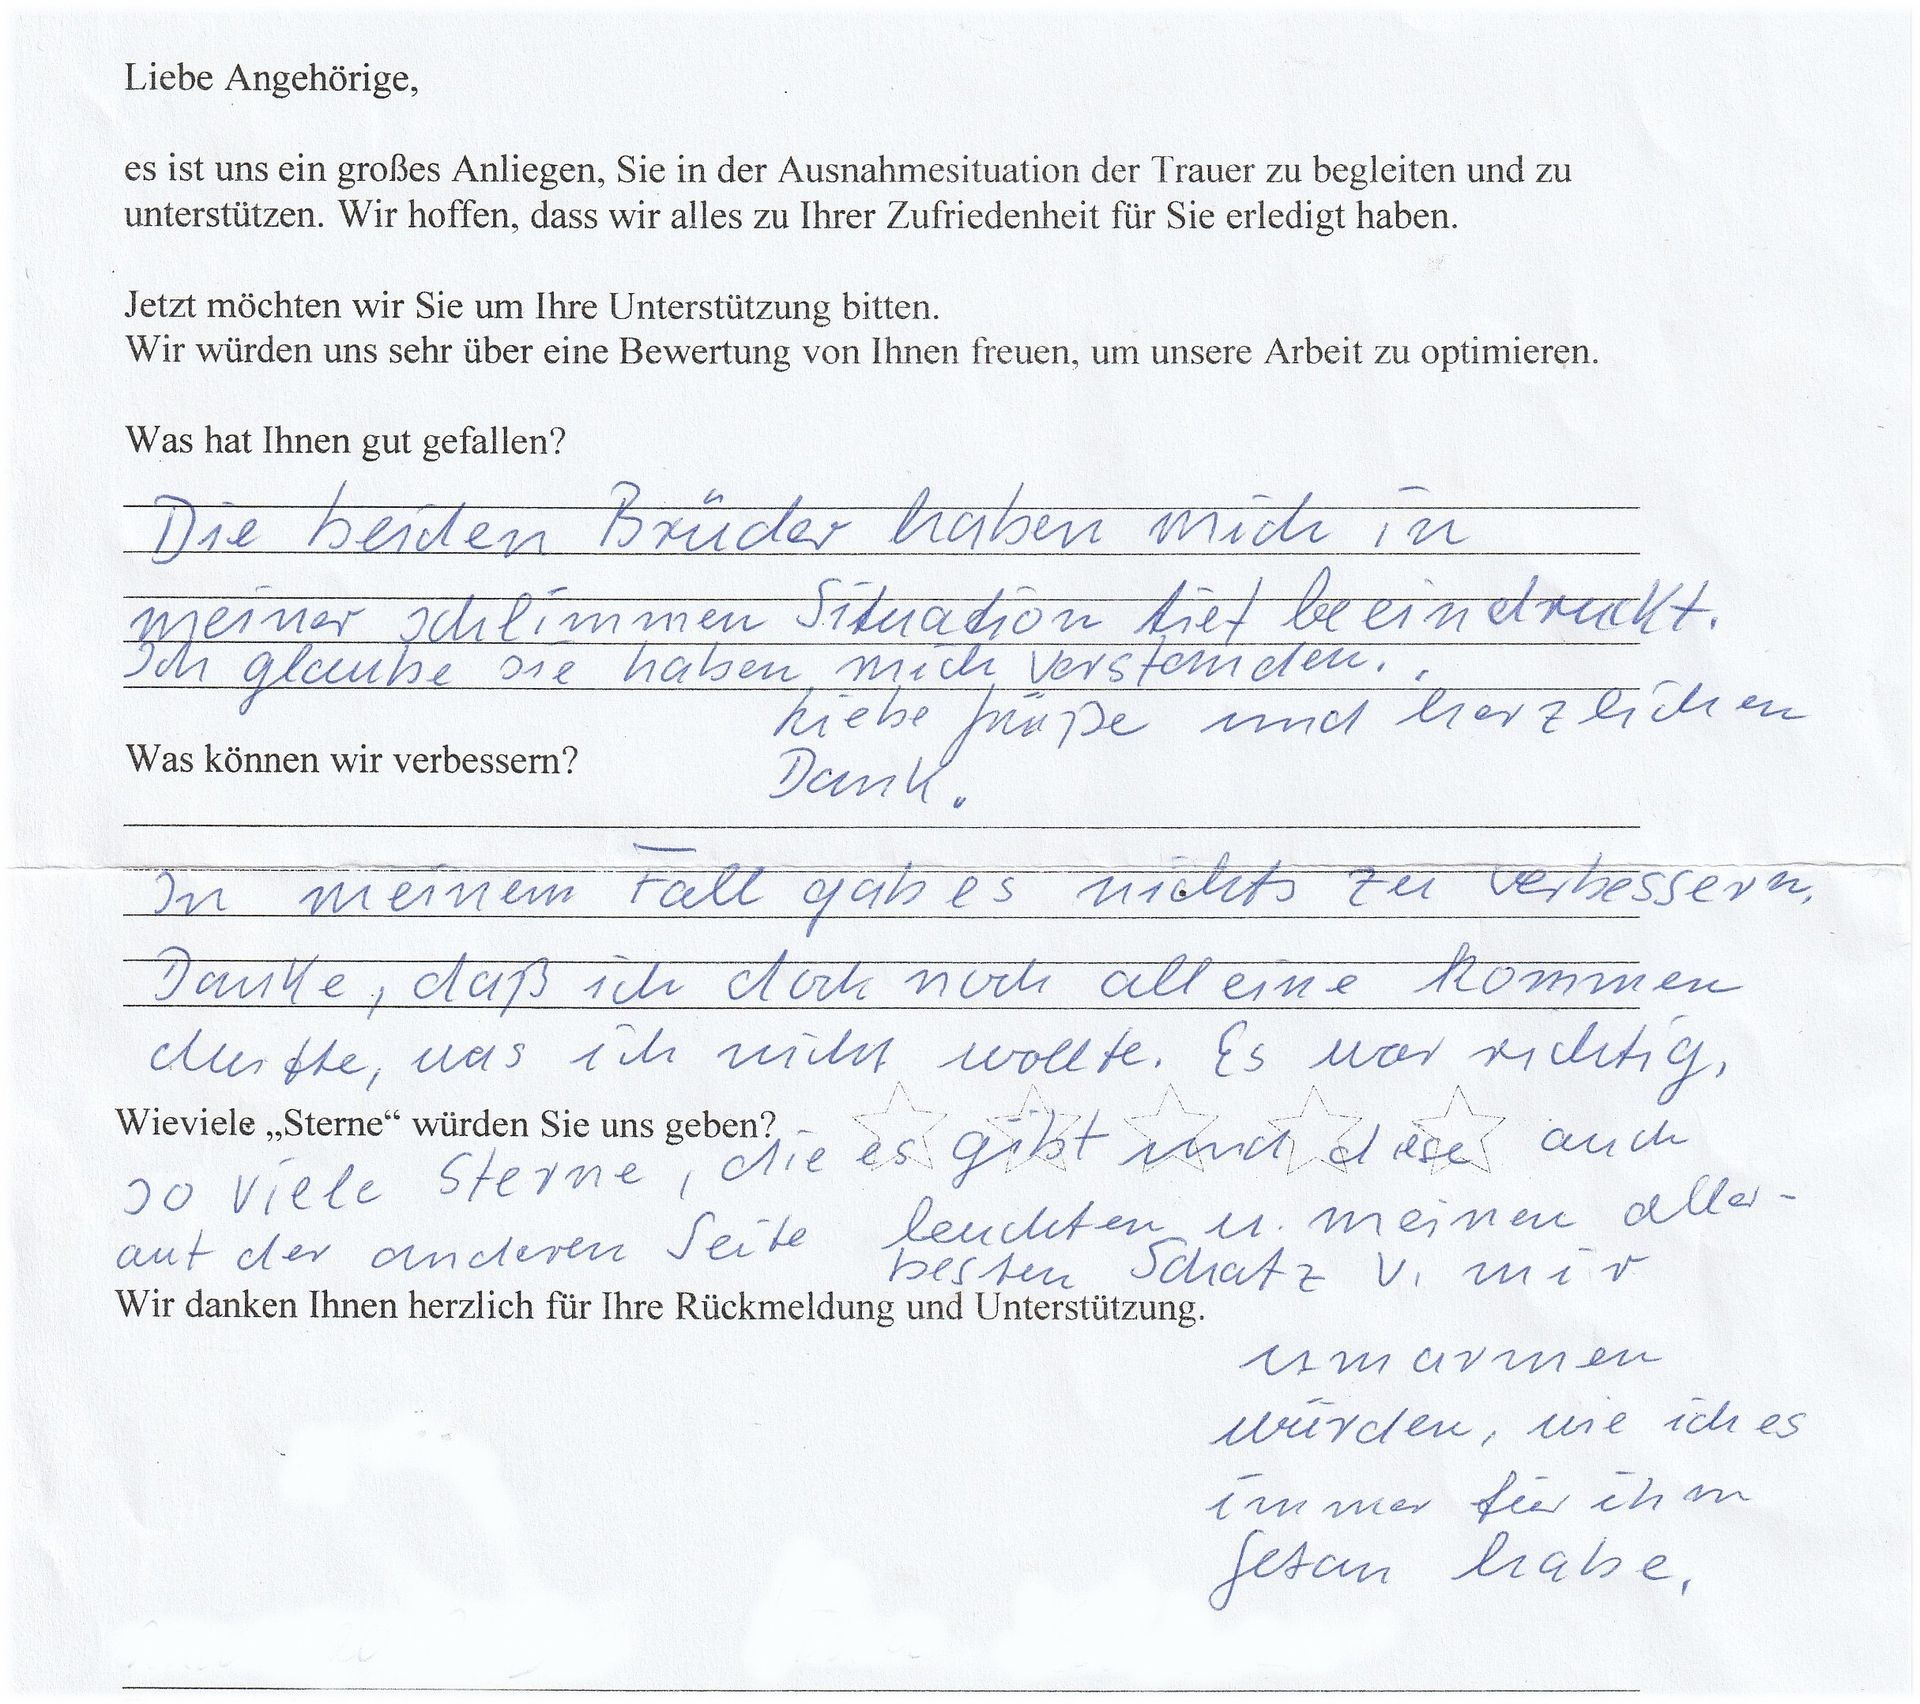 Liebe Angehörige,
es ist uns ein großes Anliegen, Sie in der Ausnahmesituation der Trauer zu begleiten und zu
unterstützen. Wir hoffen, dass wir alles zu Ihrer Zufriedenheit für Sie erledigt haben.
Jetzt möchten wir Sie um Ihre Unterstützung bitten.
Wir würden uns sehr über eine Bewertung von Ihnen freuen, um unsere Arbeit zu optimieren.
Was hat Ihnen gut gefallen?
Die beiden Brüder haben mich in
meiner schlimmen Situation tief beeindruckt.
Ich glaube sie haben mich verstanden.
Liebe Grüße und herzlichen
Dank.
Was können wir verbessern?
In meinem Fall gab es nichts zu verbessern.
Danke, daß ich doch noch alleine kommen
durfte, was ich nicht wollte. Es war richtig.
Wieviele „Sterne“ würden Sie uns geben?
so viele Sterne, die es gibt und diese auch
auf der anderen Seite leuchten u. meinen aller-
besten Schatz v. mir
Wir danken Ihnen herzlich für Ihre Rückmeldung und Unterstützung.
umarmen
würden, wie ich es
immer für ihm
getan habe.